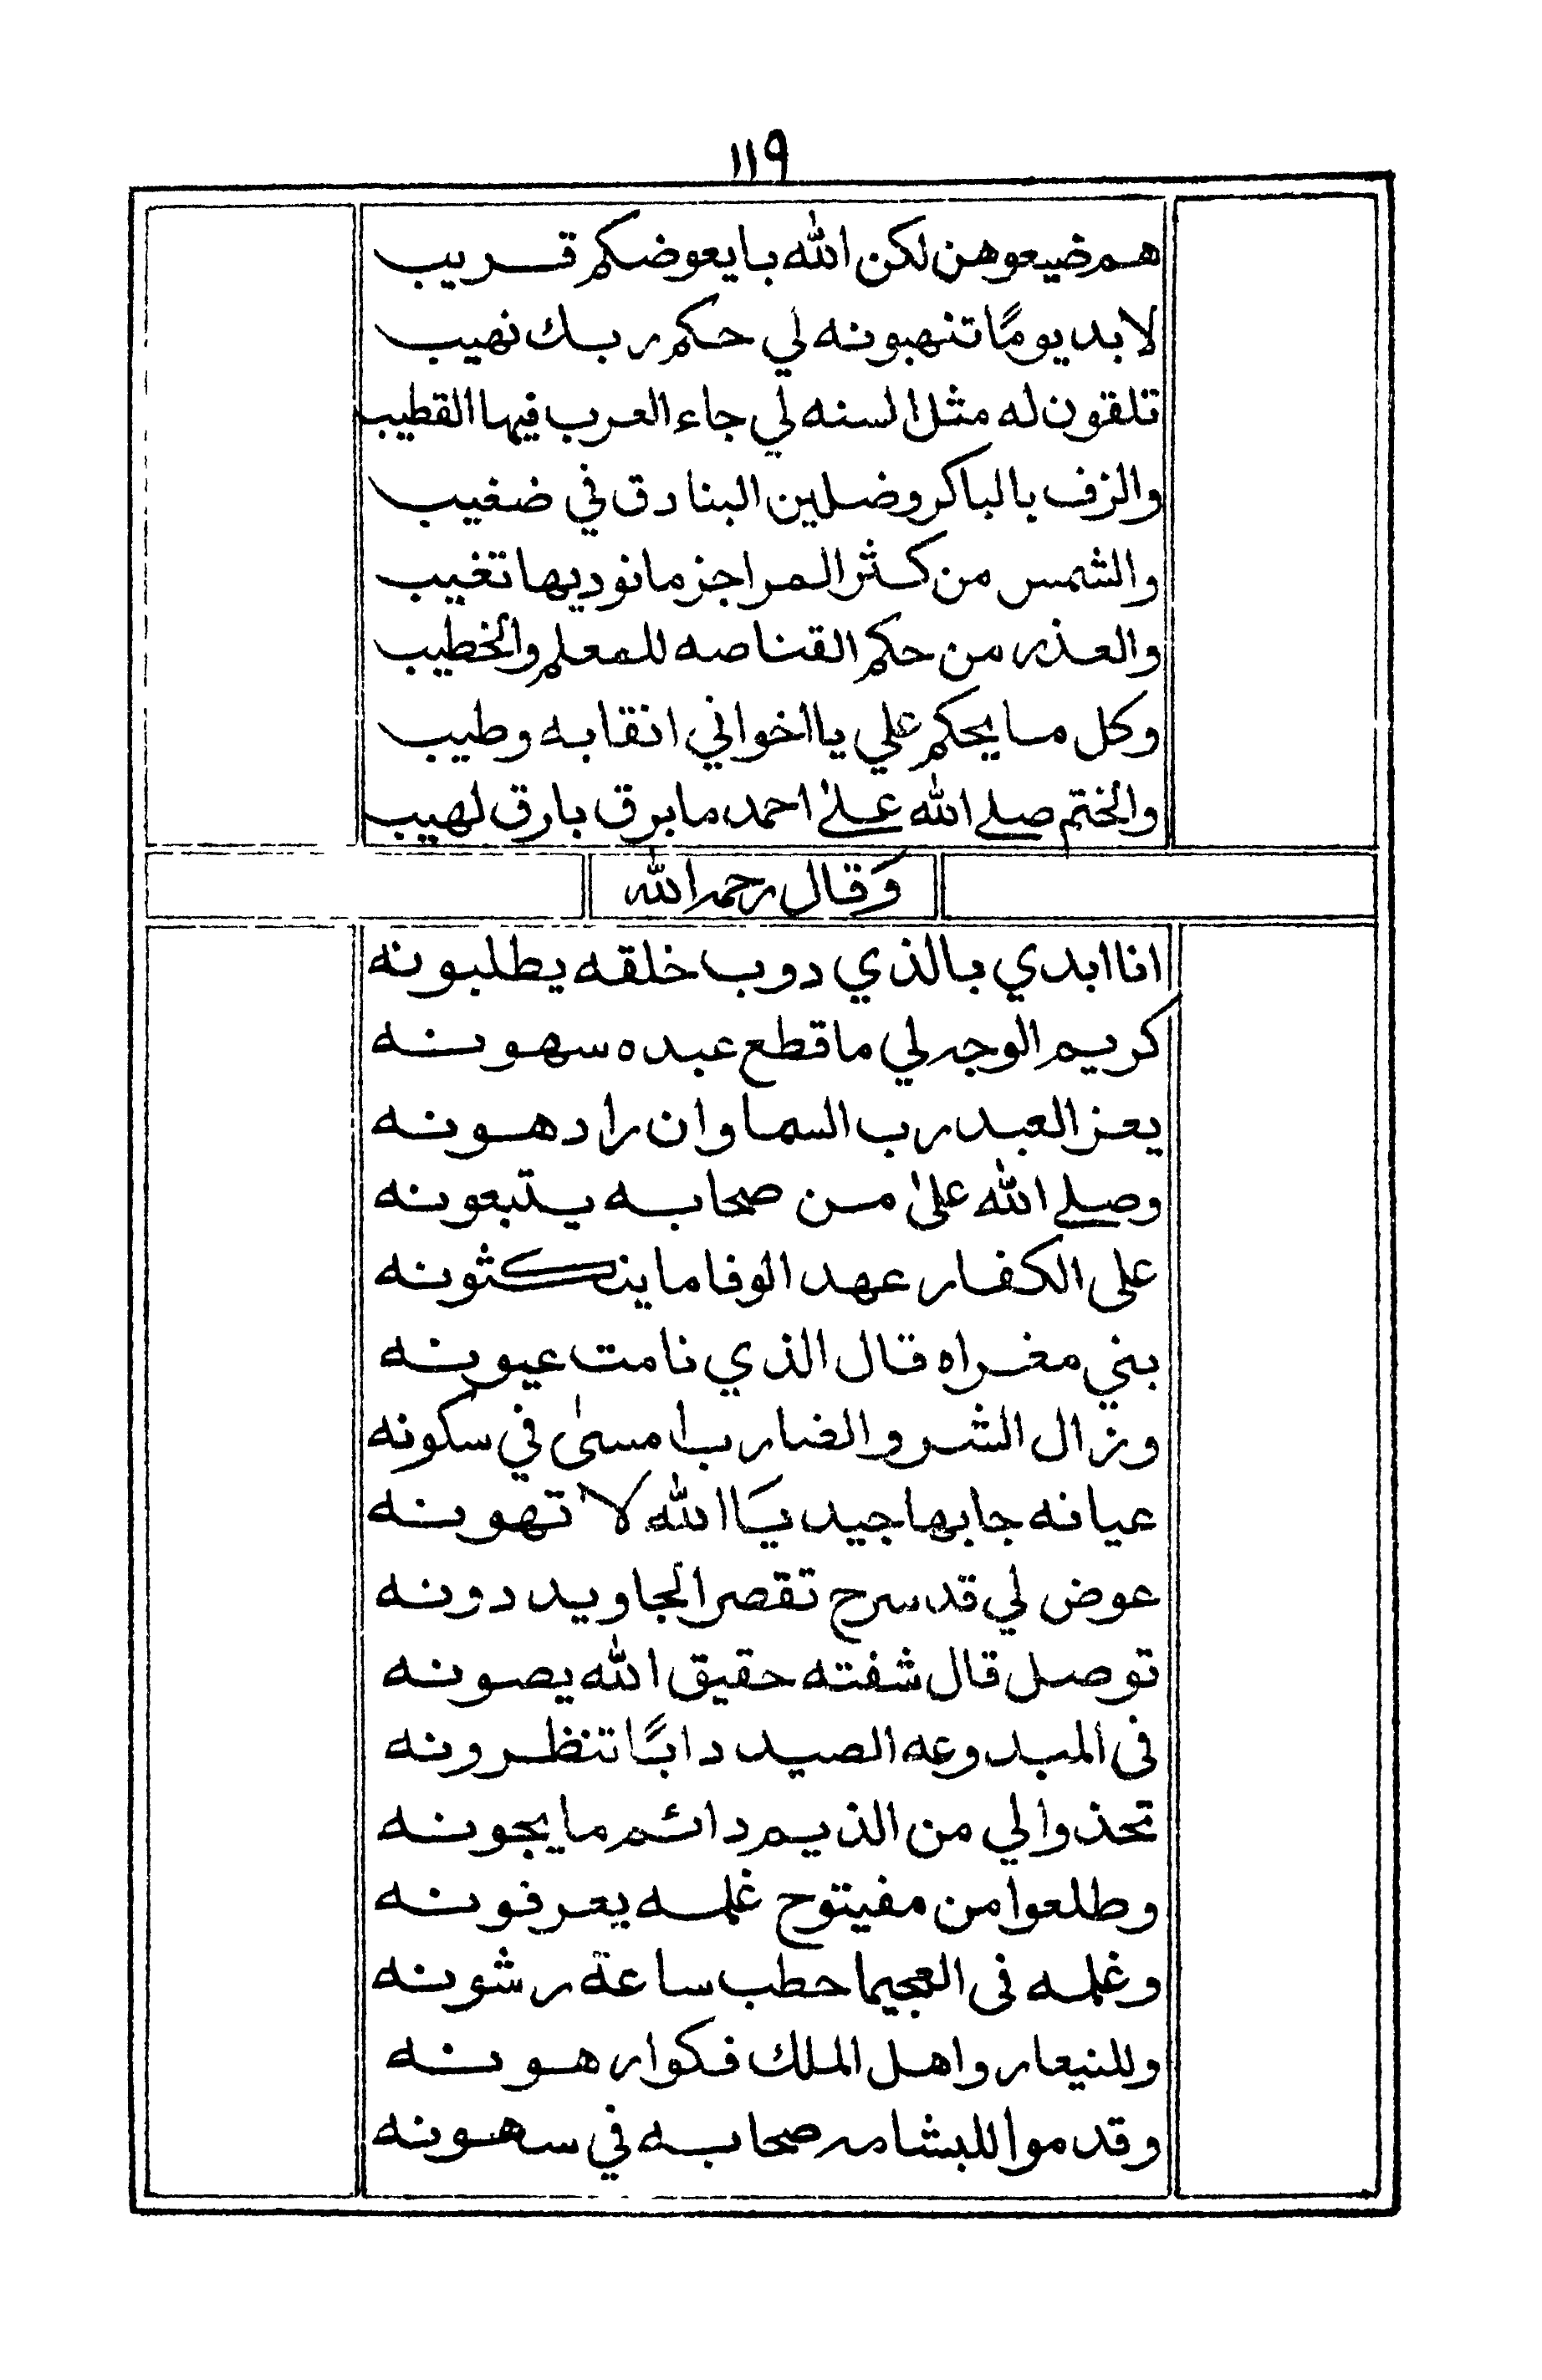 ١١٩
هم ضيعوهن لكن الله بايعوضكم قريب
لابد يومًا تنهبونه لي حكم ربك نهيب
تلقون له مثل السنه لي جاء العرب فيها القطيب
والزف بالباكر وضلين البنادق في ضغيب
والشمس من كثر المراجز ما نوديها تغيب
والعذر من حكم القناصه للمعلم والخطيب
وكل ما يحكم علي يا اخواني انقا به وطيب
والختم صلى الله على احمد ما برق بارق لهيب
وَقال رحمه الله
انا ابدي بالذي دوب خلقه يطلبونه
كريم الوجه لي ما قطع عبده سهونه
يعز العبد رب السما وان راد هونه
وصلى الله على من صحابه يتبعونه
على الكفار عهد الوفا ما ينكثونه
بني مغراه قال الذي نامت عيونه
وزال الشر والضارب امسى في سكونه
عيانه جابها جيد يَا الله لا تهونه
عوض لي قد سرح تقصر الجاويد دونه
توصل قال شفته حقيق الله يصونه
في المبدوعه الصيد دابًا تنظرونه
تحذوا لي من الذيم دائم ما يجونه
وطلعوا من مفيتوح غلمه يعرفونه
وغلمه في العجيما حطب ساعة رشونه
وللنيعار واهل الملك فكوا رهونه
وقدموا للبشامه صحابه في سهونه